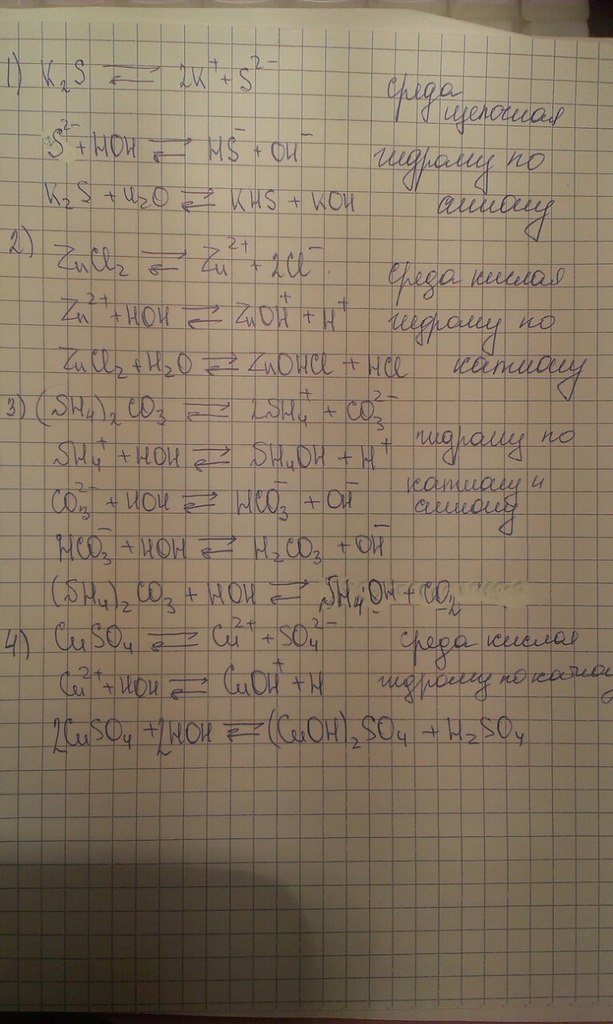 1) K₂S ⇄ 2K⁺ + S²⁻ среда
щелочная
S²⁻ + HOH ⇄ HS⁻ + OH⁻ гидролиз по
K₂S + H₂O ⇄ KHS + KOH аниону
2) ZnCl₂ ⇄ Zn²⁺ + 2Cl⁻. среда кислая
Zn²⁺ + HOH ⇄ ZnOH⁺ + H⁺ гидролиз по
ZnCl₂ + H₂O ⇄ ZnOHCl + HCl катиону
3) (NH₄)₂CO₃ ⇄ 2NH₄⁺ + CO₃²⁻
NH₄⁺ + HOH ⇄ NH₄OH + H⁺ гидролиз по
CO₃²⁻ + HOH ⇄ HCO₃⁻ + OH⁻ катиону и
аниону
HCO₃⁻ + HOH ⇄ H₂CO₃ + OH⁻
(NH₄)₂CO₃ + HOH ⇄ NH₄OH + CO₂
4) CuSO₄ ⇄ Cu²⁺ + SO₄²⁻ среда кислая
Cu²⁺ + HOH ⇄ CuOH⁺ + H гидролиз по катио
2CuSO₄ + 2HOH ⇄ (CuOH)₂SO₄ + H₂SO₄